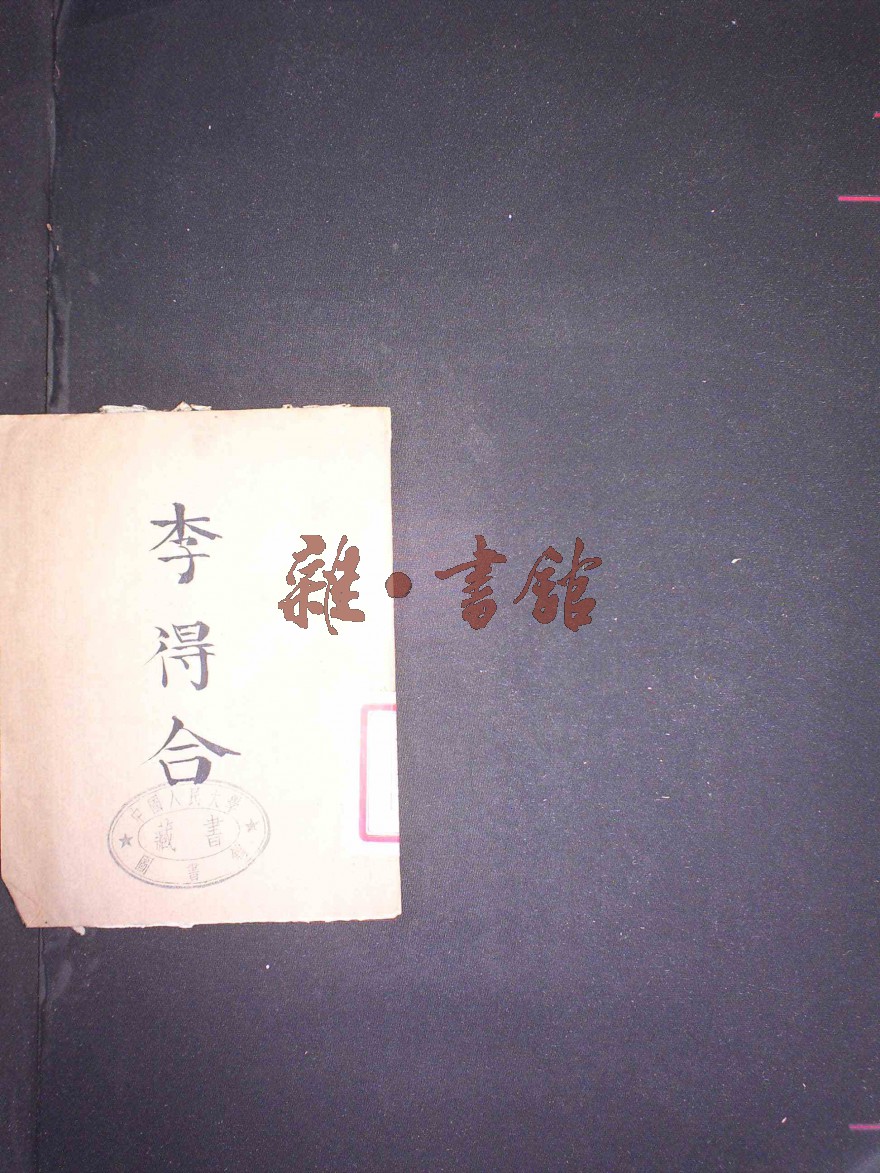 李得合
雜·書館
中國人民大學
書藏
圖書館